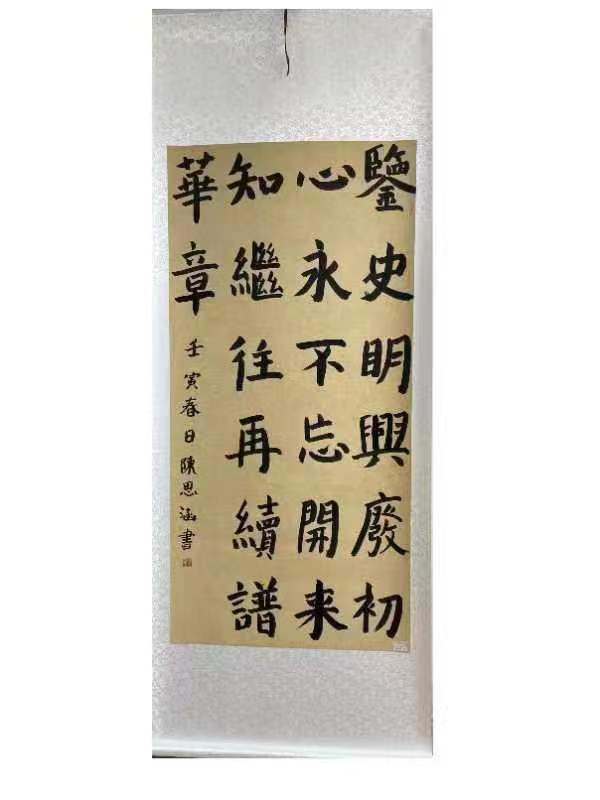 鑒史明興廢初
心永不忘開来
知繼往再續譜
華章
壬寅春日陳思涵書